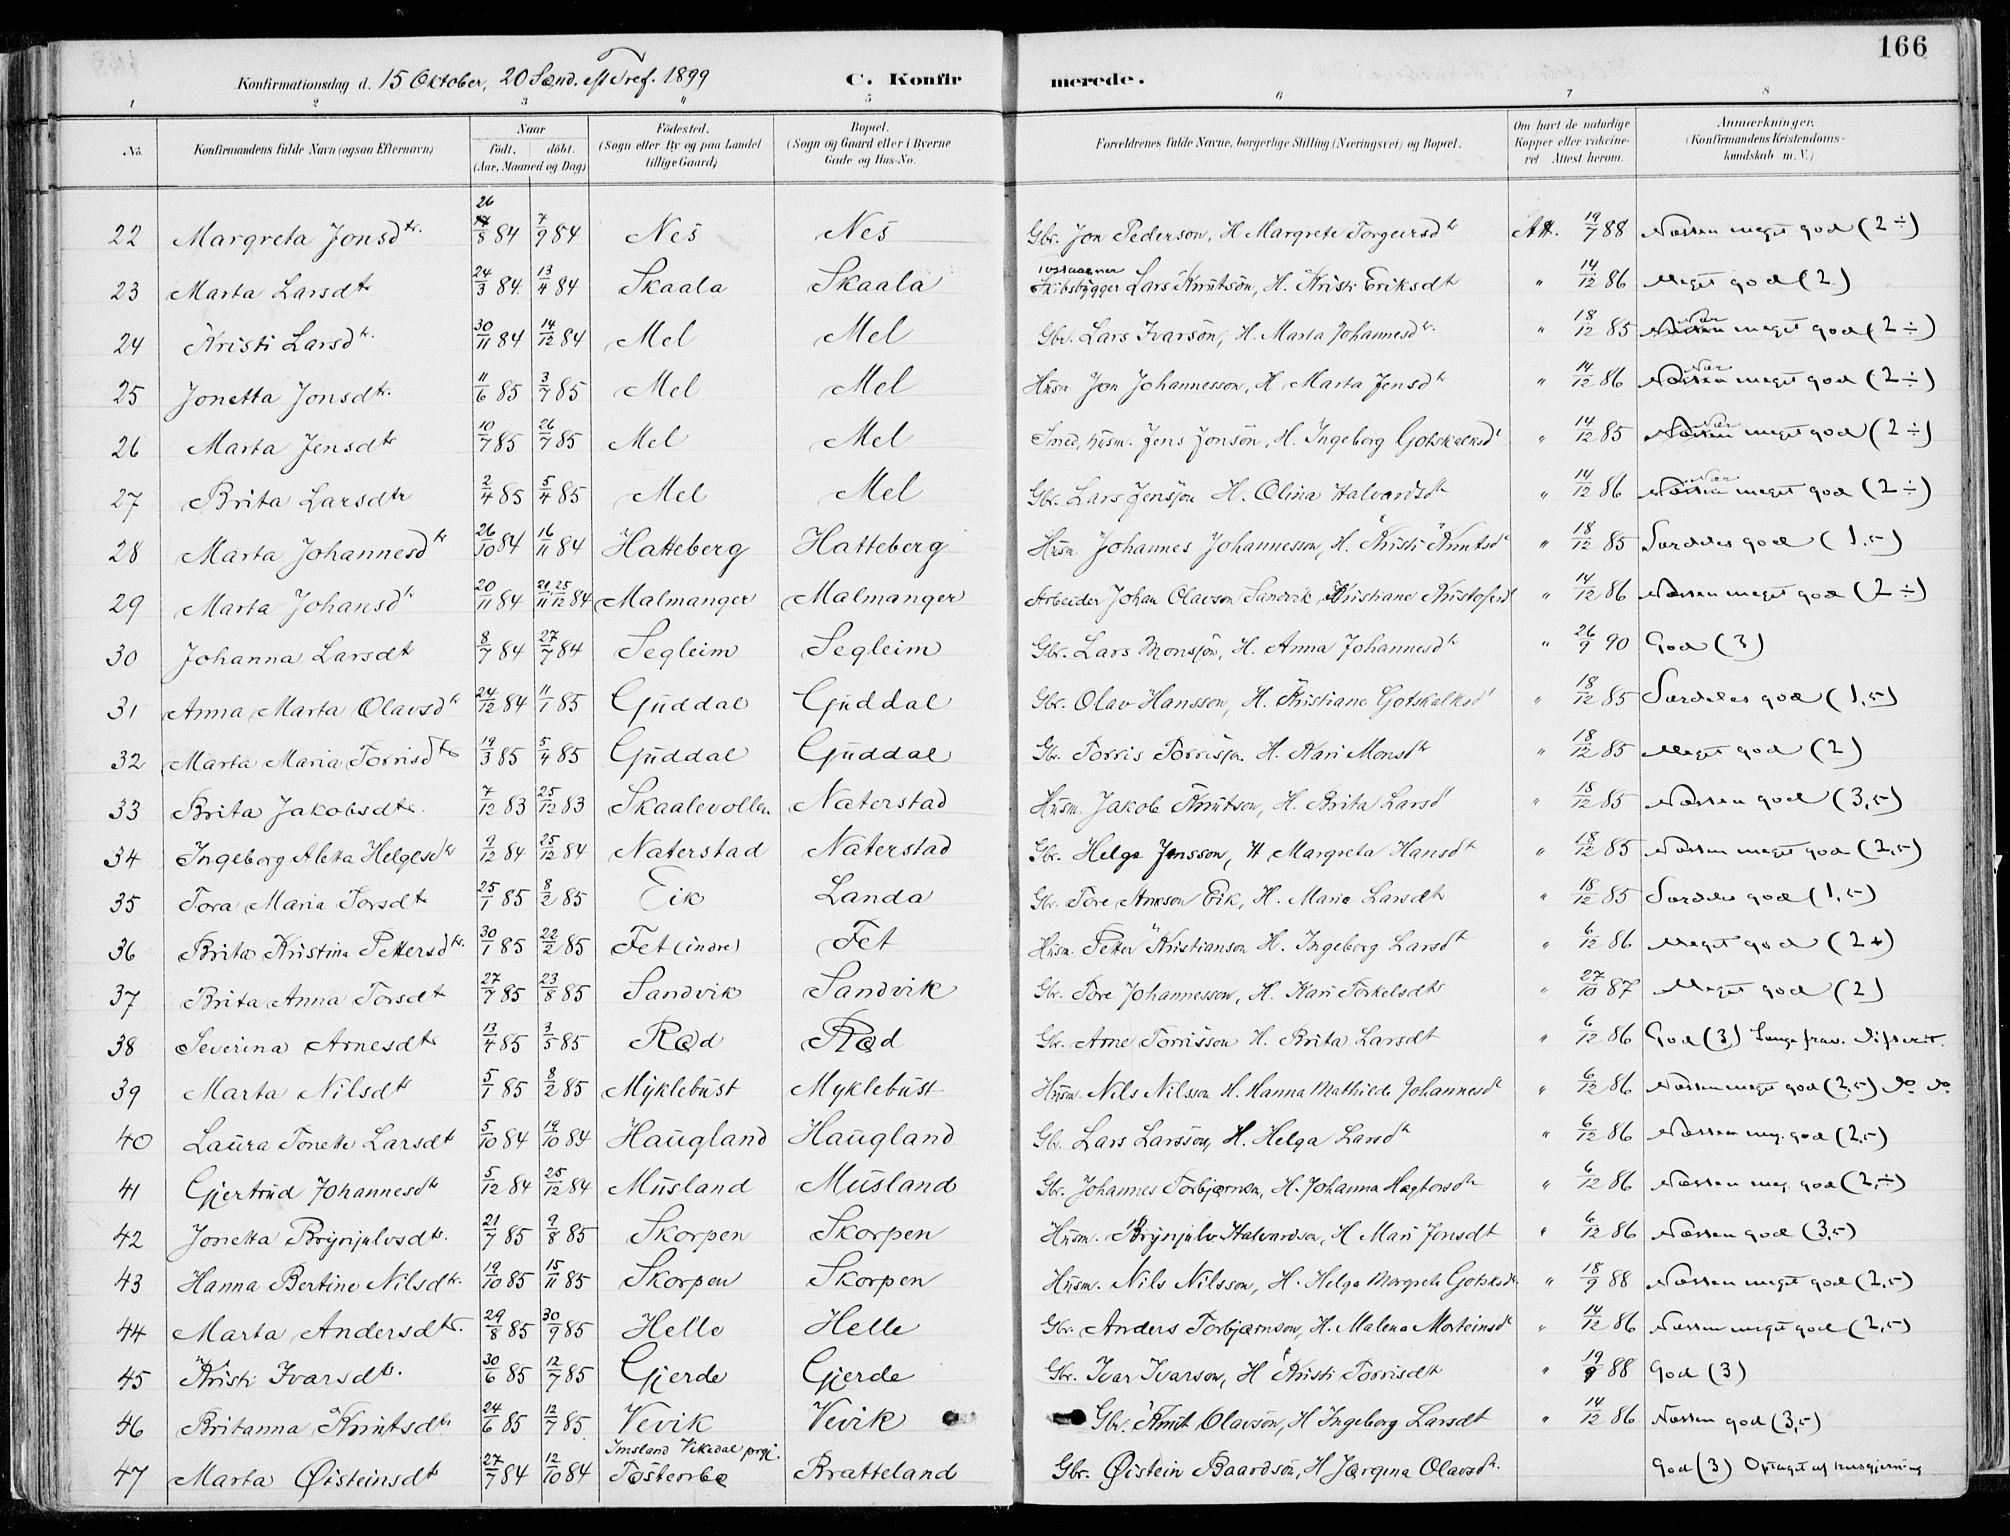 166
Konfirmationsdag d. 15 Oktober, 20 Sønd. eft Tref. 1899 C. Konfirmerede.
1 2 3 " 5 6 7 8
No. Konfirmandens fulde Navn (ogsaa Efternavn) Naar født, døbt. (Aar, Maaned og Dag) Fødested. (Sogn eller By og paa Landet tillige Gaard) Bopæl. (Sogn og Gaard eller i Byerne Gade og Hus-No. Forældrenes fulde Navne, borgerlige Stilling (Næringsvei) og Bopæl. Om havt de naturlige Kopper eller vakcineret. Attest herom. Anmærkninger. (Konfirmandens Kristendomskundskab m. V.)
26
22 Margreta Jonsdtr. 17/8 84 7/9 84 Nes Nes Gbr. Jon Pederson, H Margrete Torgeirsdtr Att. 19/7 88 Næsten meget god (2÷)
23 Marta Larsdtr 24/3 84 13/4 84 Skaala Skaala Skibsbygger Lars Knutsön, H. Kristi Eriksdt " 14/12 86 Meget god (2)
24 Kristi Larsdtr. 30/11 84 14/12 84 Mel Mel Gbr. Lars Ivarsön, H. Marta Johannesdtr. " 18/12 85 Næsten Nær meget god (2÷)
25 Jonetta Jonsdtr. 11/6 85 3/7 85 Mel Mel Husm Jon Johannesson, H. Marta Jensdtr " 14/12 86 Næsten Nær meget god (2÷)
26 Marta Jensdtr 10/7 85 26/7 85 Mel Mel Smed, husm. Jens Jonsön, H. Ingeborg Gotskalksdt " 14/12 85 Næsten Nær meget god (2÷)
27 Brita Larsdtr 2/4 85 5/4 85 Mel Mel Gbr. Lars Jensson H. Olina Halvardsdtr " 14/12 86 Næsten Nær meget god (2÷)
28 Marta Johannesdtr 26/10 84 16/11 84 Hatteberg Hatteberg Husm. Johannes Johannesson, H. Kristi Knutsdt " 18/12 85 Særdeles god (1,5)
29 Marta Johansdtr 20/11 84 21/11 25/12 84 Malmanger Malmanger Arbeider Johan Olavson Sandvik, Kristiane Kristofersd " 14/12 86 Næsten meget god (2÷)
30 Johanna Larsdt 8/7 84 27/7 84 Segleim Segleim Gbr. Lars Monsson, H. Anna Johannesdtr " 26/9 90 God (3)
31 Anna Marta Olavsdtr 24/12 84 11/1 85 Guddal Guddal Gbr. Olav Hansson, H. Kristiane Gotskalksd " 18/12 85 Særdeles god (1,5)
32 Marta Maria Torrisdtr 19/3 85 5/4 85 Guddal Guddal Gbr. Torris Torrisson. H. Kari Monsdtr " 18/12 85 Meget god (2)
33 Brita Jakobsdtr. 7/12 83 25/12 83 Skaalevollen Naterstad Husm. Jakob Knutson, H. Brita Larsd " 18/12 85 Næsten god (3,5)
34 Ingeborg Aletta Helgesdtr 9/12 84 25/12 84 Naterstad Naterstad Gbr. Helge Jensson, H Margreta Hansdt " 18/12 85 Næsten meget god (2,5)
35 Tora Maria Torsdt 25/1 85 8/2 85 Eik Landa Gbr. Tore Arneson Eik, H. Maria Larsdtr " 18/12 85 Særdeles god (1,5)
36 Brita Kristina Pettersdtr. 30/1 85 22/2 85 Fet (indre) Fet Husm. Petter Kristianson H. Ingeborg Larsdt " 6/12 86 Meget god (2+)
37 Brita Anna Torsdt 27/7 85 23/8 85 Sandvik Sandvik Gbr. Tore Johannesson, H. Kari Torkelsdtr " 27/10 87 Meget god (2)
38 Severina Arnesdtr 13/4 85 3/5 85 Rød Rød Gbr. Arne Torrisson H. Brita Larsdt " 6/12 86 God (3) Lenge frav. Difterit.
39 Marta Nilsdtr 5/1 85 8/2 85 Myklebust Myklebust Husm. Nils Nilsson H. Hanna Mathilde Johannesdt " 6/12 86 Næsten meget god (2,5) do do
40 Laura Tonette Larsdt 5/10 84 19/10 84 Haugland Haugland Gbr. Lars Larsson, H. Helga Larsdtr " 6/12 86 Næsten meg. god (2,5)
41 Gjertrud Johannesdtr 5/12 84 25/12 84 Musland Musland Gbr. Johannes Torbjørnson, H. Johanna Hagtorsdtr " 6/12 86 Næsten meg. god (2,÷)
42 Jonetta Brynjulvsdtr. 21/7 85 9/8 85 Skorpen Skorpen Husm. Brynjulv Halvardson, H Mari Jonsdt " 6/12 86 Næsten god (3,5)
43 Hanna Bertine Nilsdtr. 19/10 85 15/11 85 Skorpen Skorpen Husm. Nils Nilsson, H. Helga Margrete Gotsksdt. " 18/9 88 Næsten meget god (2,5)
44 Marta Andersdtr. 29/8 85 30/9 85 Helle Helle Gbr. Anders Torbjørnson, H. Malena Morteinsdt " 14/12 86 Næsten meget god (2,5)
45 Kristi Ivarsdtr. 30/6 85 12/7 85 Gjerde Gjerde Gbr. Ivar Ivarson, H Kristi Torrisdtr " 19/9 88 God (3)
46 Britanna Knutsdtr 24/6 85 12/7 85 Vevik Vevik Gbr. Knut Olavsön, H Ingeborg Larsdt " 14/12 86 Næsten god (3,5)
Imsland Vikedal prgj.
47 Marta Øisteinsdt 27/7 84 12/10 84 Tøstenbø Bratteland Gbr. Øistein Baardsön, H Jørgina Olavsdtr. God (3) Optaget af husgjerning